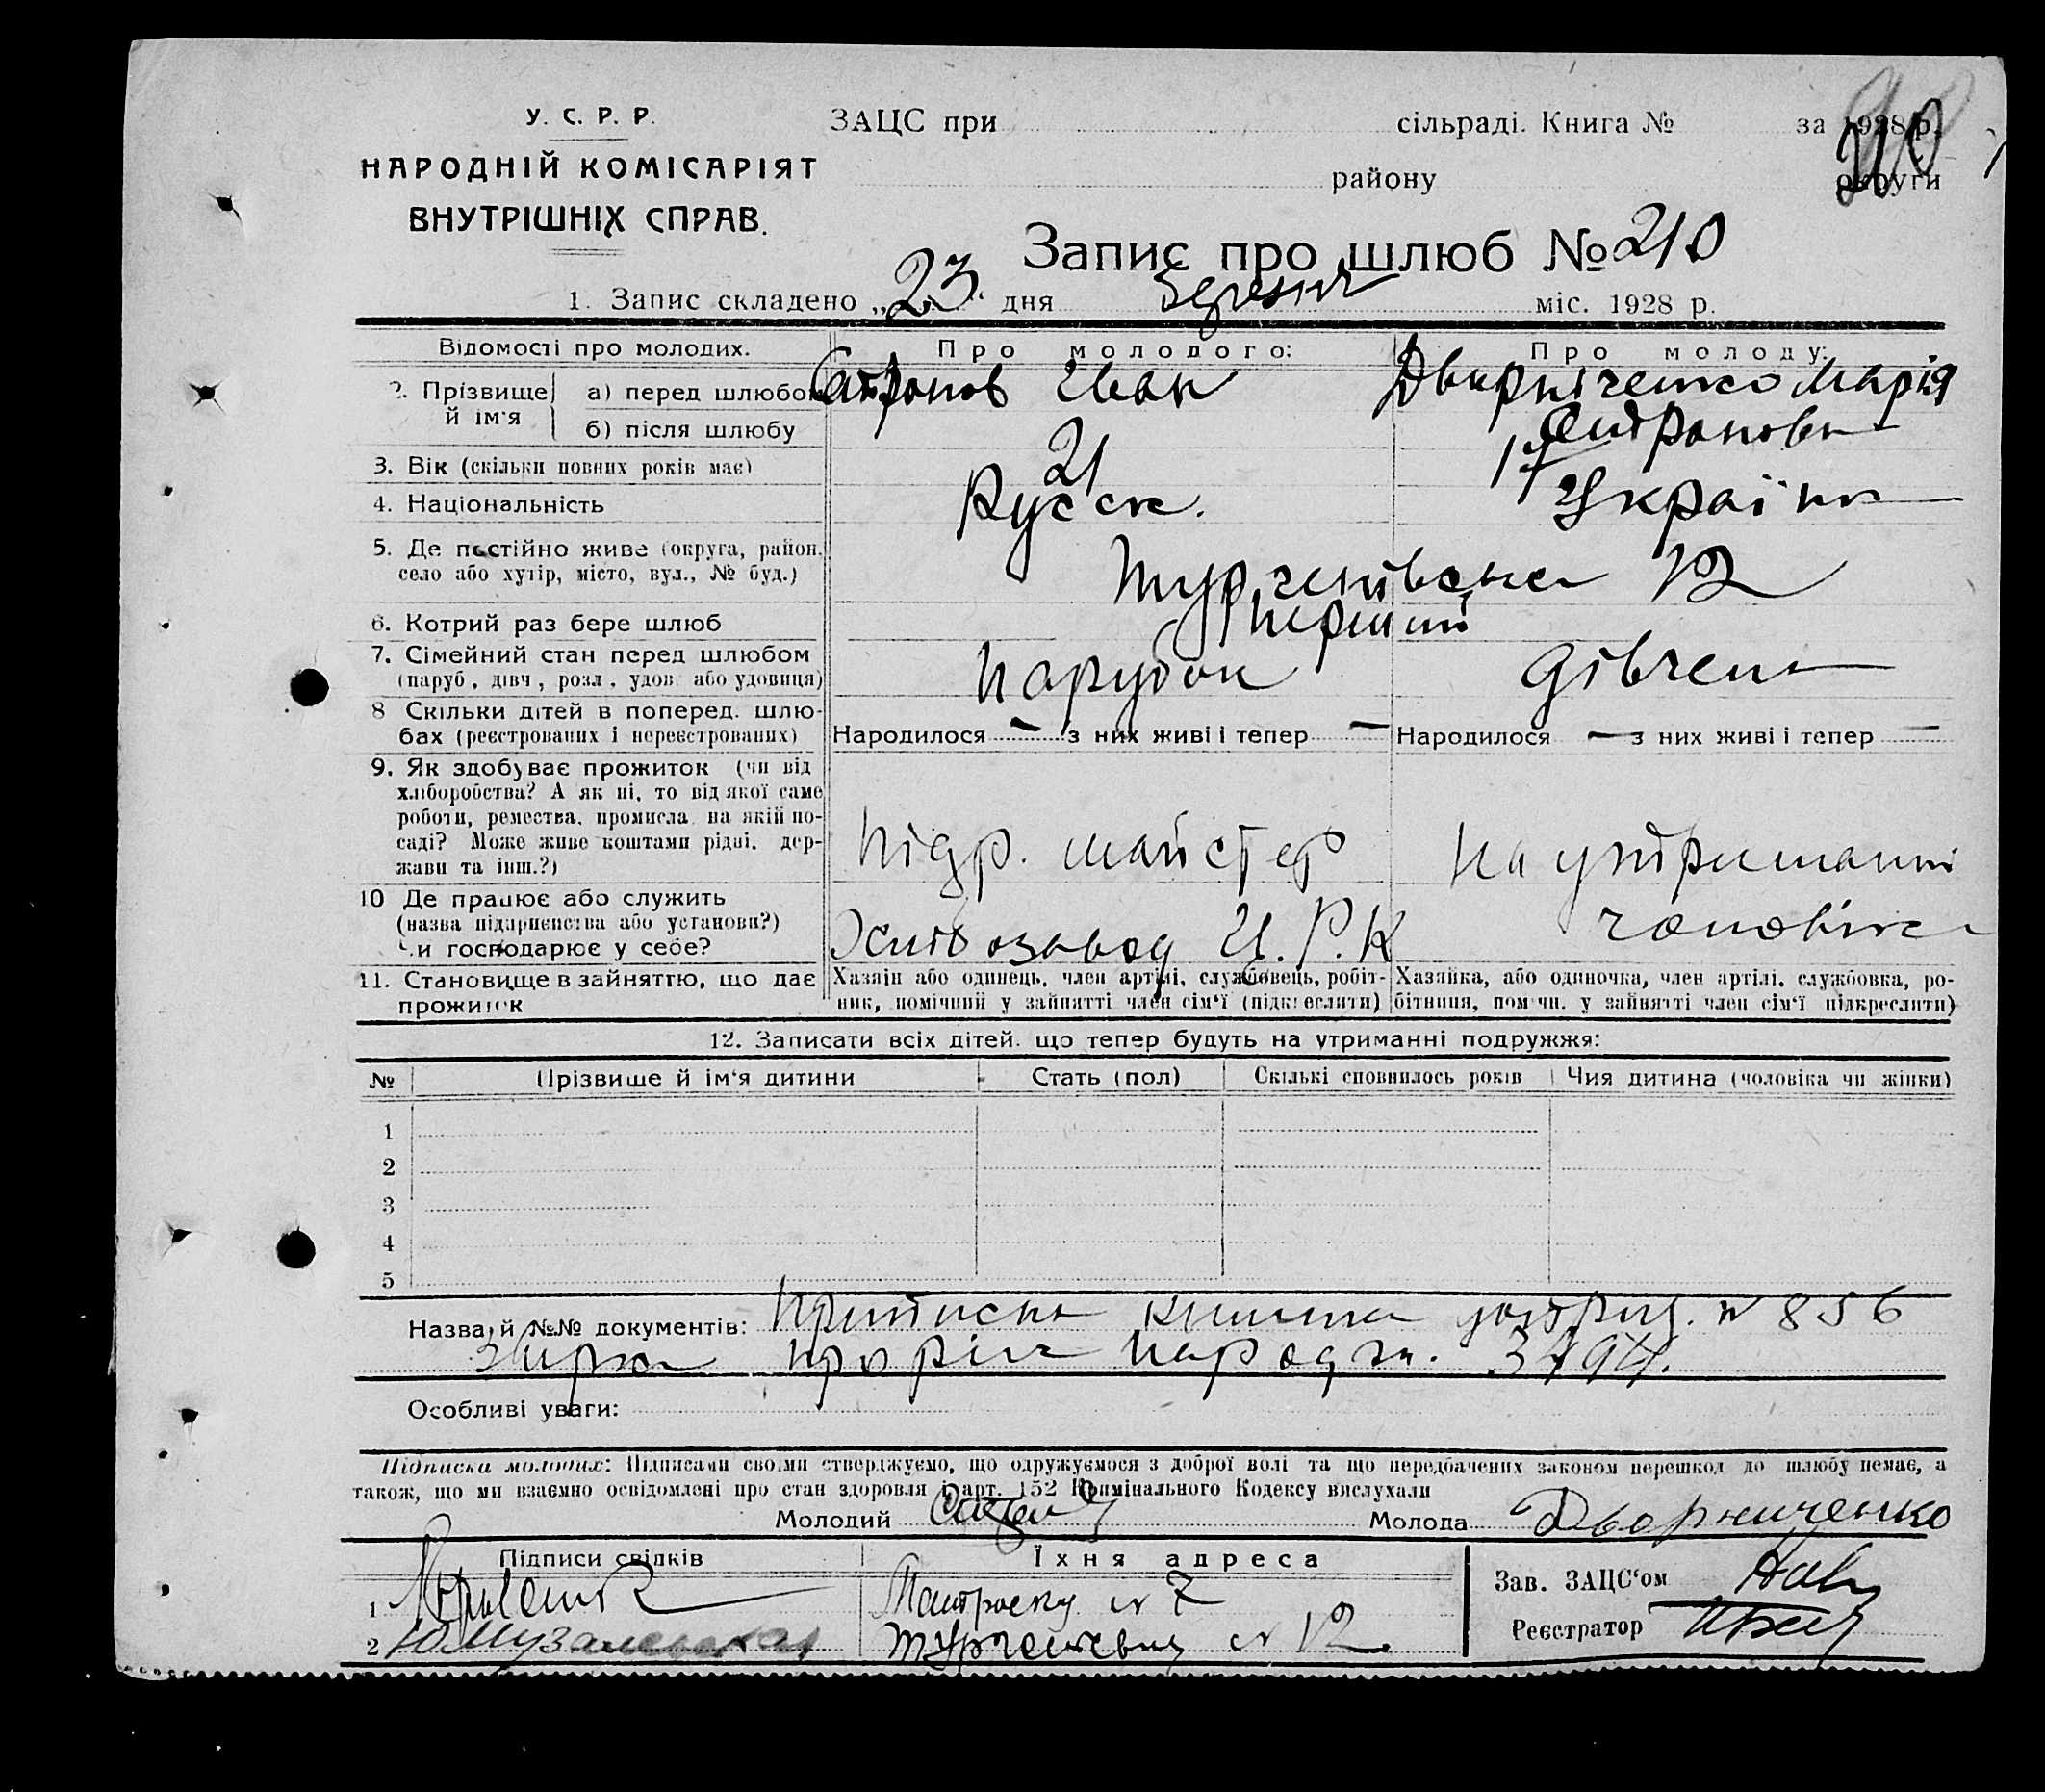 У. С. Р. Р.
НАРОДНІЙ КОМІСАРІЯТ
ВНУТРІШНІХ СПРАВ.
ЗАЦС при сільраді. Книга № за 1928 р.
району округи
210
Запис про шлюб № 210
1. Запис складено „23“ дня Березня міс. 1928 р.
Відомості про молодих. Про молодого: Про молоду:
2. Прізвище й ім'я а) перед шлюбом Іван Дворніченко Марія
б) після шлюбу
3. Вік (скільки повних років має) 21 17
4. Національність Русск. Українка
5. Де постійно живе (округа, район,
село або хутір, місто, вул., № буд.) 12
6. Котрий раз бере шлюб Перший
7. Сімейний стан перед шлюбом
(паруб., дівч., розл., удов. або удовиця) Парубок Дівчена
8 Скільки дітей в поперед. шлю-
бах (реєстрованих і нереєстрованих) Народилося — з них живі і тепер — Народилося — з них живі і тепер —
9. Як здобуває прожиток (чи від
хліборобства? А як ні, то від якої саме
роботи, ремества, промисла, на якій по-
саді? Може живе коштами рідні, дер-
жави та інш.?) Підр. майстер На утриманні
10 Де працює або служить
(назва підприєнства або установи?) чоловіка
Чи господарює у себе? Хлібозавод Ц.Р.К
11. Становище в зайняттю, що дає
прожиток
Хазяїн або одинець, член артілі, службовець, робіт-
ник, помічний у зайнятті член сім'ї (підкреслити)
Хазяйка, або одиночка, член артілі, службовка, ро-
бітниця, помічн. у зайнятті член сім'ї підкреслити)
12. Записати всіх дітей, що тепер будуть на утриманні подружжя:
№ Прізвище й ім'я дитини Стать (пол) Скількі сповнилось років Чия дитина (чоловіка чи жінки)
1
2
3
4
5
Назва й №№ документів: Приписна книжка № 856
про рік народж. 3494.
Особливі уваги:
Підписка молодих: Підписами своїми стверджуємо, що одружуємося з доброї волі та що передбачених законом перешкод до шлюбу немає, а
також, що ми взаємно освідомлені про стан здоровля і арт. 152 Кримінального Кодексу вислухали
Молодий Молода Дворниченко
Підписи свідків Їхня адреса
1 № 7
2 № 12
Зав. ЗАЦС'ом
Реєстратор